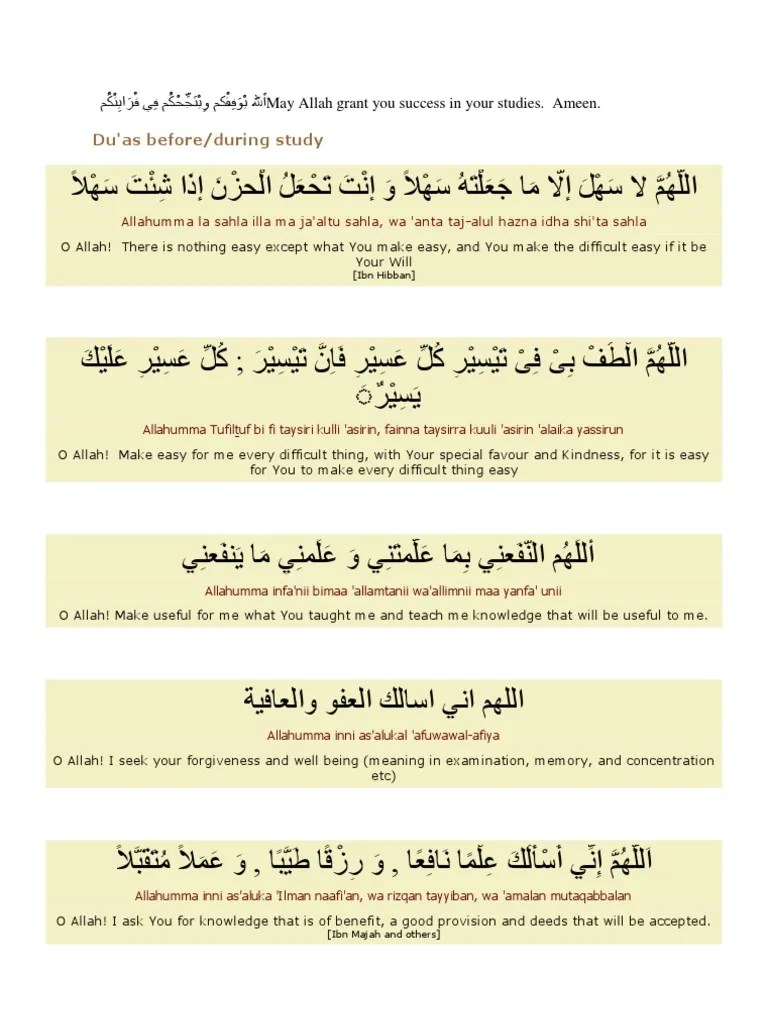 اَلله يُوَفِقْكم وِيْنَجِّحْكُم فِي قْرَايِتْكُم May Allah grant you success in your studies. Ameen.
Du'as before/during study
اللّهُمَّ لا سَهْلَ إلّا مَا جَعَلْتَهُ سَهْلاً وَ إنْتَ تَحْعَلُ الْحزْنَ إذا شِئْتَ سَهْلاً
Allahumma la sahla illa ma ja'altu sahla, wa 'anta taj-alul hazna idha shi'ta sahla
O Allah! There is nothing easy except what You make easy, and You make the difficult easy if it be
Your Will
[Ibn Hibban]
اللّهُمَّ الْطَفْ بِىْ فِىْ تَيْسِيْرِ كُلِّ عَسِيْرِ فَاِنَّ تَيْسِيْرَ ; كُلِّ عَسِيْرِ عَلَيْكَ
يَسِيْرٌ
Allahumma Tufilṯuf bi fi taysiri kulli 'asirin, fainna taysirra kuuli 'asirin 'alaika yassirun
O Allah! Make easy for me every difficult thing, with Your special favour and Kindness, for it is easy
for You to make every difficult thing easy
أللَهُم الْنّفَعنِي بِمَا عَلّمتَنِي وَ عَلّمنِي مَا يَنفَعنِي
Allahumma infa'nii bimaa 'allamtanii wa'allimnii maa yanfa' unii
O Allah! Make useful for me what You taught me and teach me knowledge that will be useful to me.
اللهم اني اسالك العفو والعافية
Allahumma inni as'alukal 'afuwawal-afiya
O Allah! I seek your forgiveness and well being (meaning in examination, memory, and concentration
etc)
اَللّهُمَّ إنِّي أسْألَكَ عِلْمًا نَافِعًا , وَ رِزْقًا طَيَّبًا , وَ عَمَلاً مُتَقَبَّلاً
Allahumma inni as'aluka 'Ilman naafi'an, wa rizqan tayyiban, wa 'amalan mutaqabbalan
O Allah! I ask You for knowledge that is of benefit, a good provision and deeds that will be accepted.
[Ibn Majah and others]